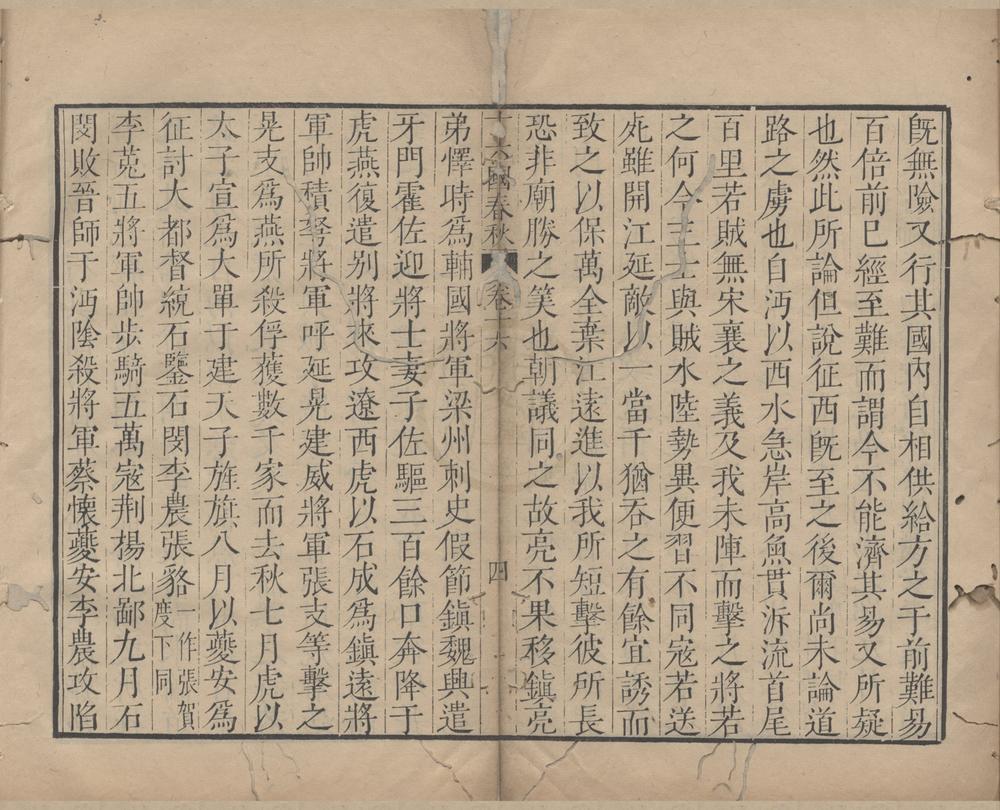 旣無險又行其國內自相供給方之于前難易
百倍前巳經至難而謂今不能濟其易又所疑
也然此所論但說征西旣至之後爾尚未論道
路之虜也自沔以西水急岸高魚貫泝流首尾
百里若賊無宋襄之義及我未陣而擊之將若
之何今王士與賊水陸勢異便習不同寇若送
死雖開江延敵以一當千猶吞之有餘宜誘而
致之以保萬全棄江遠進以我所短擊彼所長
恐非廟勝之筭也朝議同之故亮不果移鎮亮
十六國春秋 卷十六 四
弟懌時爲輔國將軍梁州刺史假節鎮魏興遣
牙門霍佐迎將士妻子佐驅三百餘口奔降于
虎燕復遣别將來攻遼西虎以石成爲鎮遠將
軍帥積弩將軍呼延晃建威將軍張支等擊之
晃支爲燕所殺俘獲數千家而去秋七月虎以
太子宣爲大單于建天子旌旗八月以夔安爲
征討大都督統石鑒石閔李農張貉一作張賀度下同
李菟五將軍帥步騎五萬寇荆楊北鄙九月石
閔敗晉師于沔陰殺將軍蔡懷夔安李農攻陷